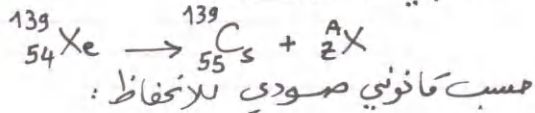 ¹³⁹₅₄Xe → ¹³⁹₅₅Cs + ᴬ_ZX
حسب قانوني صودي للانحفاظ :